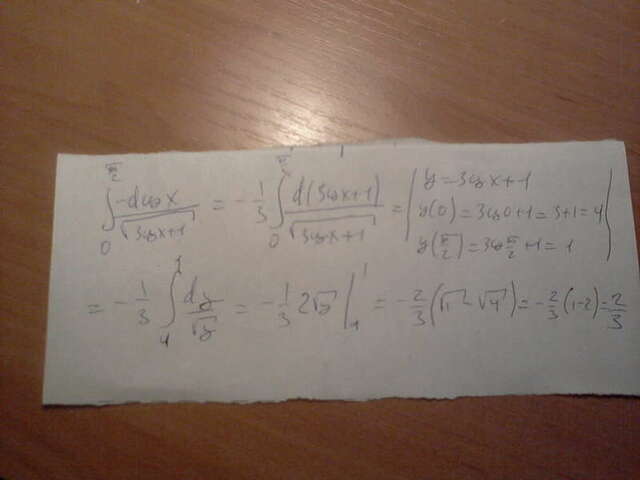 ∫₀^{π/2} -dcosx / √(3cosx+1) = -1/3 ∫₀^{π/2} d(3cosx+1) / √(3cosx+1) = | y=3cosx+1
y(0)=3cos0+1=3+1=4
y(π/2)=3cos π/2 +1=1 |
= -1/3 ∫₄¹ dy/√y = -1/3 2√y |₄¹ = -2/3 (√1 - √4) = -2/3 (1-2) = 2/3